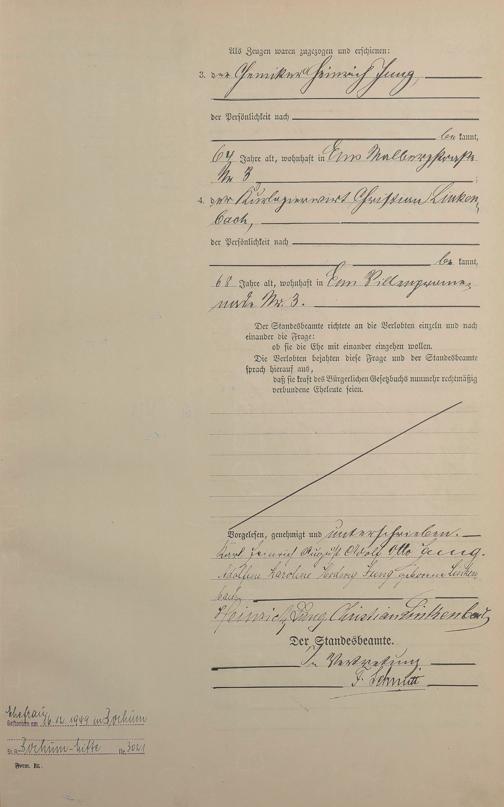 Als Zeugen waren zugezogen und erschienen:
3. der Chemiker Heinrich Jung,
der Persönlichkeit nach
be kannt,
64 Jahre alt, wohnhaft in Ems Malbergstraße
Nr. 3.
4. der Kurlogierwirt Christian Linken-
bach,
der Persönlichkeit nach
be kannt,
68 Jahre alt, wohnhaft in Ems Villenprome-
nade Nr. 3.
Der Standesbeamte richtete an die Verlobten einzeln und nach
einander die Frage:
ob sie die Ehe mit einander eingehen wollen.
Die Verlobten bejahten diese Frage und der Standesbeamte
sprach hierauf aus,
daß sie kraft des Bürgerlichen Gesetzbuchs nunmehr rechtmäßig
verbundene Eheleute seien.
Vorgelesen, genehmigt und unterschrieben.
Karl Heinrich August Adolf Otto Jung.
Karoline Hedwig Jung geborene Linken-
bach
Heinrich Jung Christian Linkenbach
Der Standesbeamte.
In Vertretung
F. Schmitt
Ehefrau
Gestorben am 16.12.1949 in Bochum
St. A. Bochum-Mitte Nr. 3021
Form. Bt.